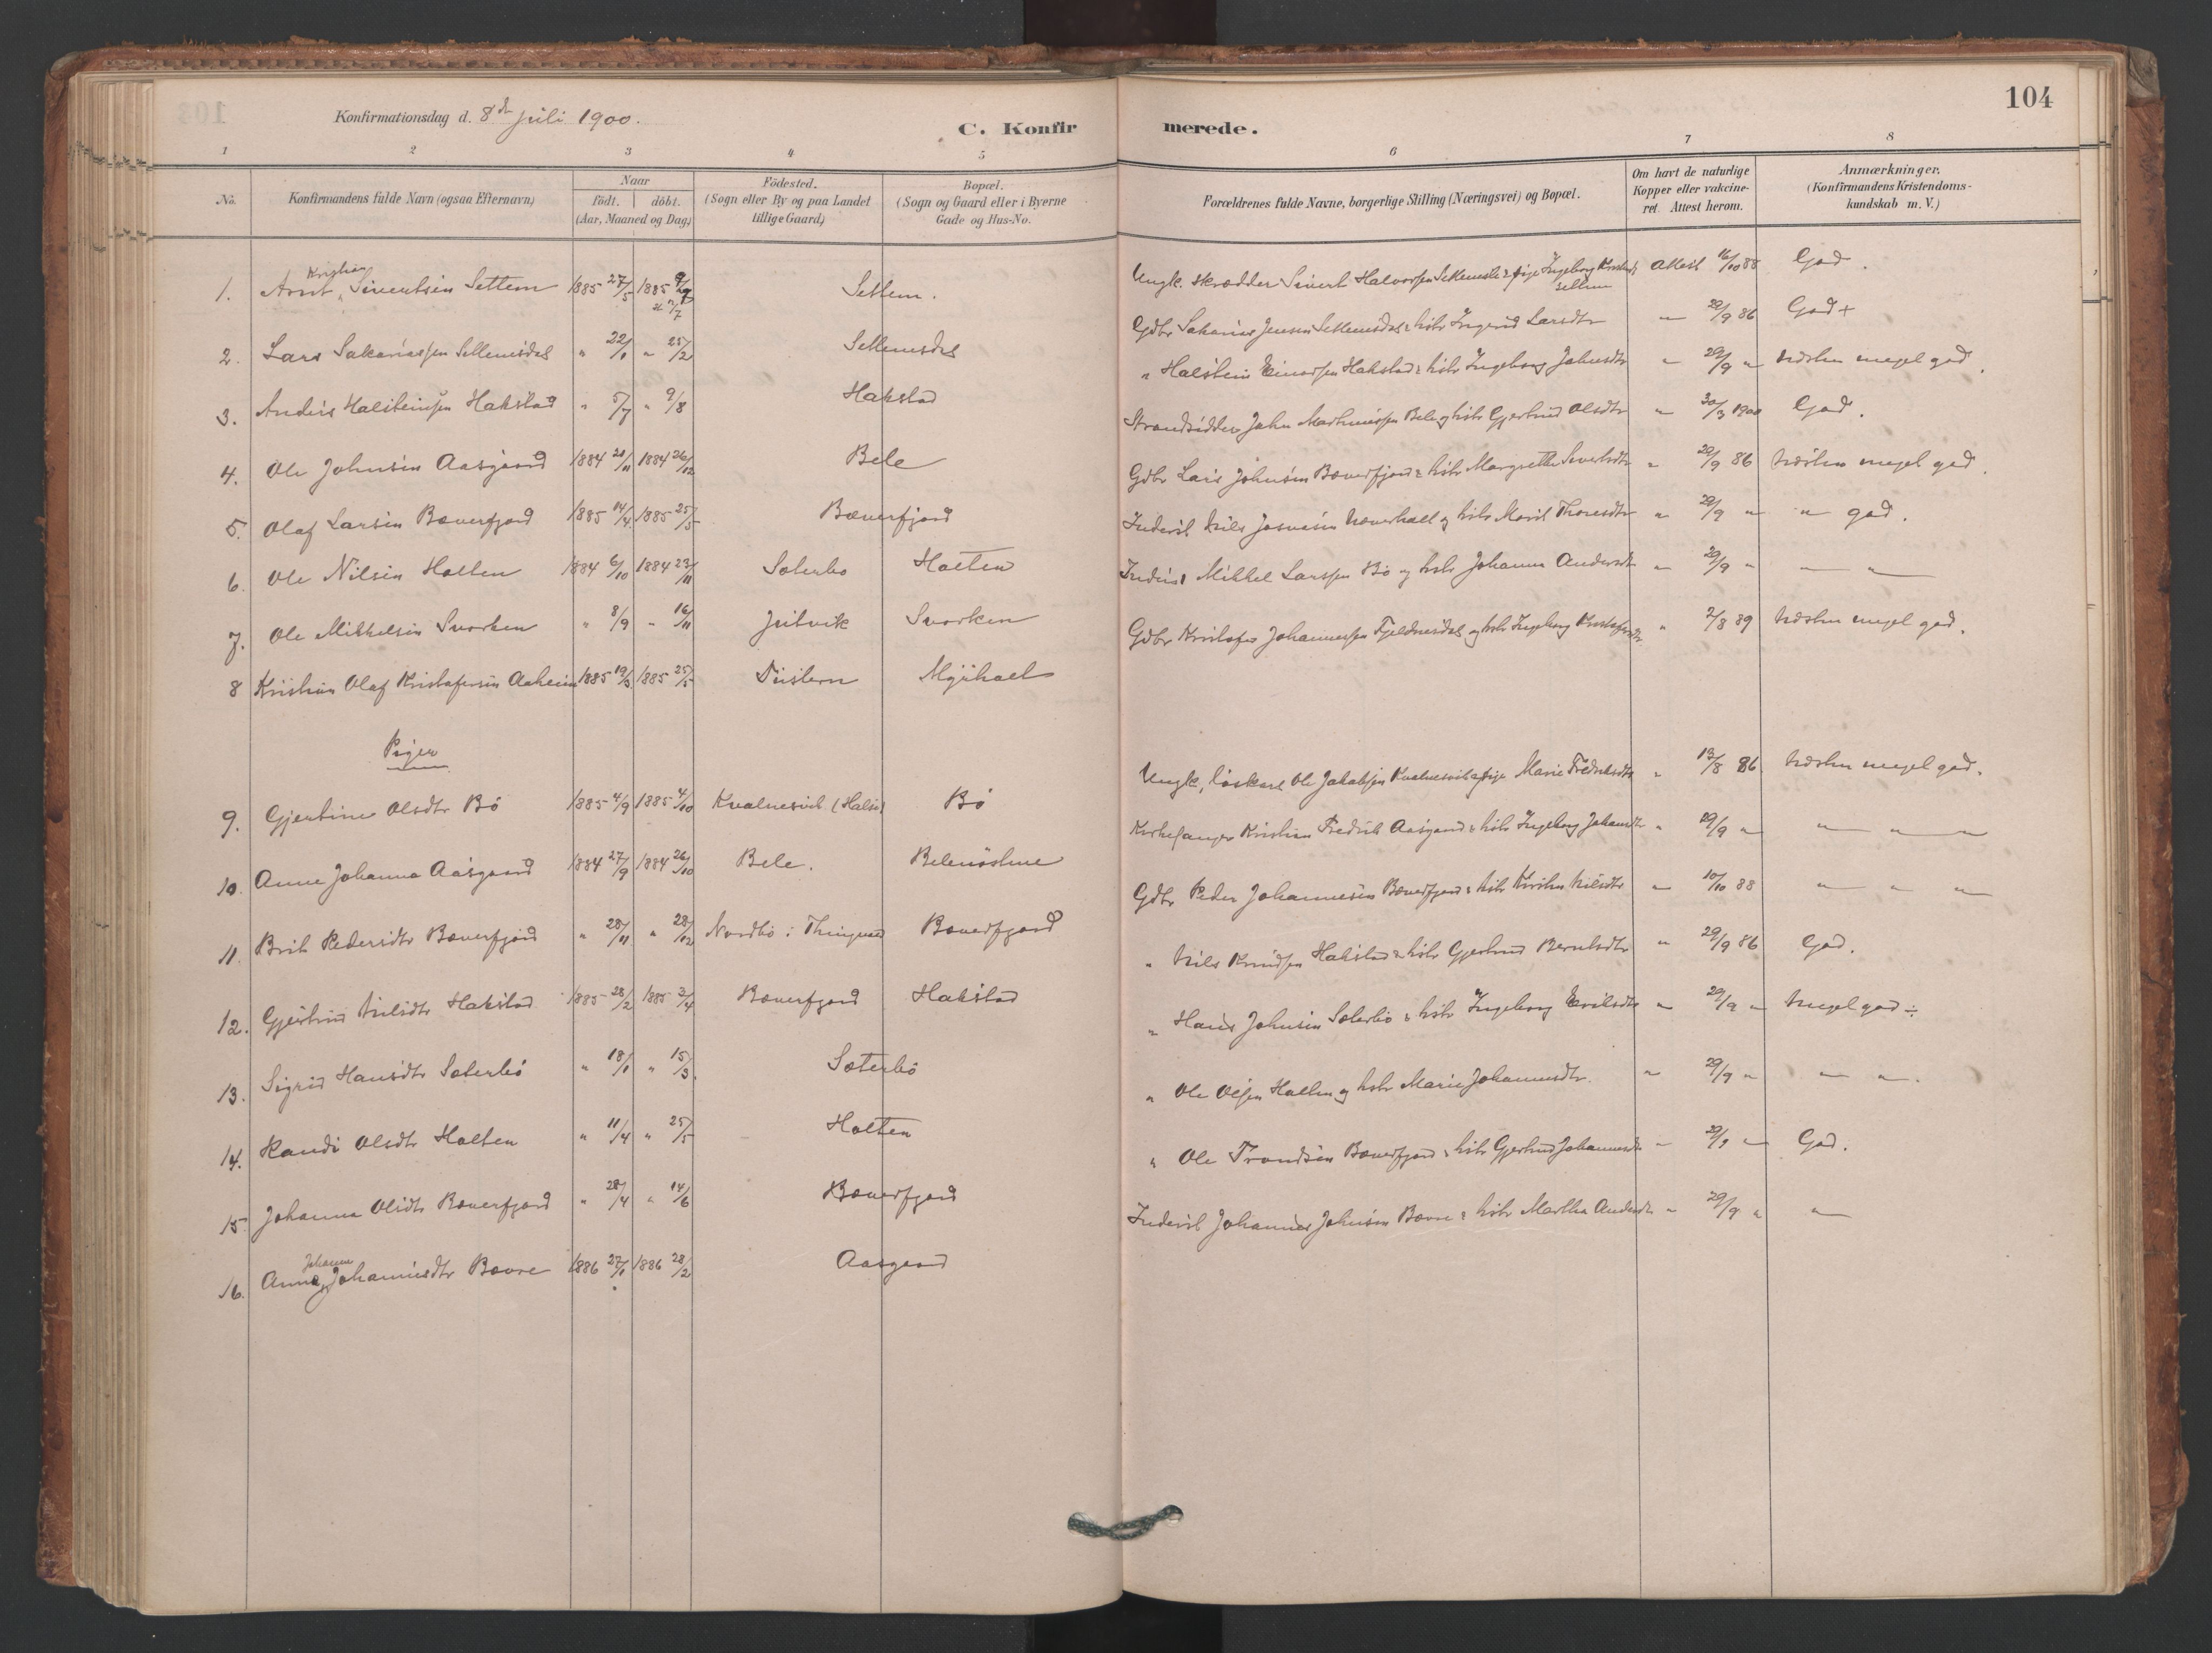 104
Konfirmationsdag d. 8de juli 1900.
C. Konfirmerede.
1 2 3 4 5 6 7 8
No. Konfirmandens fulde Navn (ogsaa Efternavn) Naar født. døbt. (Aar, Maaned og Dag) Födested. (Sogn eller By og paa Landet tillige Gaard) Bopæl. (Sogn og Gaard eller i Byerne Gade og Hus-No. Forældrenes fulde Navne, borgerlige Stilling (Næringsvei) og Bopæl. Om havt de naturlige Kopper eller vakcineret. Attest herom. Anmærkninger. (Konfirmandens Kristendomskundskab m. V.)
1. Arnt Kristian Sivertsen Settem 1885 27/5 1885 Settem. Ungk. skrædder Sivert Halvorsen Settemsli & pige Ingeborg Settem Attest 16/10 88 God.
2. Lars Sakariassen Settemsdal " 22/1 " 25/2 Settemsdal Gdbr Sakarias Jensen Settemsdal & hstr Ingerid Larsdtr " 29/9 86 God +
3. Anders Halsteinsen Hakstad " 5/7 " 9/8 Hakstad " Halstein Einarsen Hakstad & hstr Ingeborg Johnsdtr " 29/9 " næsten meget god.
4. Ole Johnsen Aasgaard 1884 21/11 1884 26/12 Bele Strandsidder John Mathiassen Bele og hstr Gjertrud Olsdtr " 30/3 1900 God.
5. Olaf Larsen Bæverfjord 1885 14/4 1885 25/5 Bæverfjord Gdbr Lars Johnsen Bæverfjord & hstr Margrethe Sivertsdtr " 29/9 86 næsten meget god.
6. Ole Nilsen Holten 1884 6/10 1884 23/11 Sæterbø Holten Inderst Nils hstr Marit Thoresdtr " 29/9 " " god.
7. Ole Mikkelsen Svorken " 8/9 " 16/11 Jutvik Svorken Inderst Mikkel Larssen Bø og hstr Johanna Andersdtr " 29/9 " " "
8 Kristian Olaf Kristofersen Aaheim 1885 19/3 1885 25/5 Myrhael Gdbr Kristofer Johannessen Fjeldnesdal og hstr Ingeborg Kristofersdtr " 2/8 89 næsten meget god.
Piger
9. Gjertine Olsdtr Bø 1885 4/9 1885 4/10 Kvalnesvik (Halse) Bø Ungk, løskarl Ole Jakobsen Kvalnesvik & pige Marie Fredriksdtr " 13/8 86 næsten meget god.
10. Anne Johanna Aasgaard 1884 27/9 1884 26/10 Bele. Belenøstene Kirkesanger Kristian Fredrik Aasgaard & hstr Ingeborg Johansdtr " 29/9 " " " "
11. Brit Pedersdtr Bæverfjord " 28/11 " 28/12 Nordbø i Thingvold Bæverfjord Gdbr Peder Johannesen Bæverfjord & hstr Kirsten Nilsdtr " 10/10 88 " " "
12. Gjertrud Nilsdtr Hakstad 1885 28/2 1885 3/4 Bæverfjord Hakstad " Nils Knudsen Hakstad & hstr Gjertrud Berntsdtr " 29/9 86 God.
13. Sigrid Hansdtr Sæterbø " 18/1 " 15/3. Sæterbø " Hans Johnsen Sæterbø & hstr Ingeborg Eriksdtr " 29/9 " Meget god ÷
14. Randi Olsdtr Holten " 11/4 " 25/5 Holten " Ole Olsen Holten og hstr Marie Johannesdtr. " 29/9 " " ".
15. Johanna Olsdtr Bæverfjord " 28/4 " 14/6 Bæverfjord " Ole Trondsen Bæverfjord & hstr Gjertrud Johannesdtr " 29/9 " God.
16. Anna Johanna Johannesdtr Bævre 1886 27/1 1886 28/2 Aasgaard Inderst Johannes Johnsen Bævre & hstr Martha Andersdtr " 29/9 " "